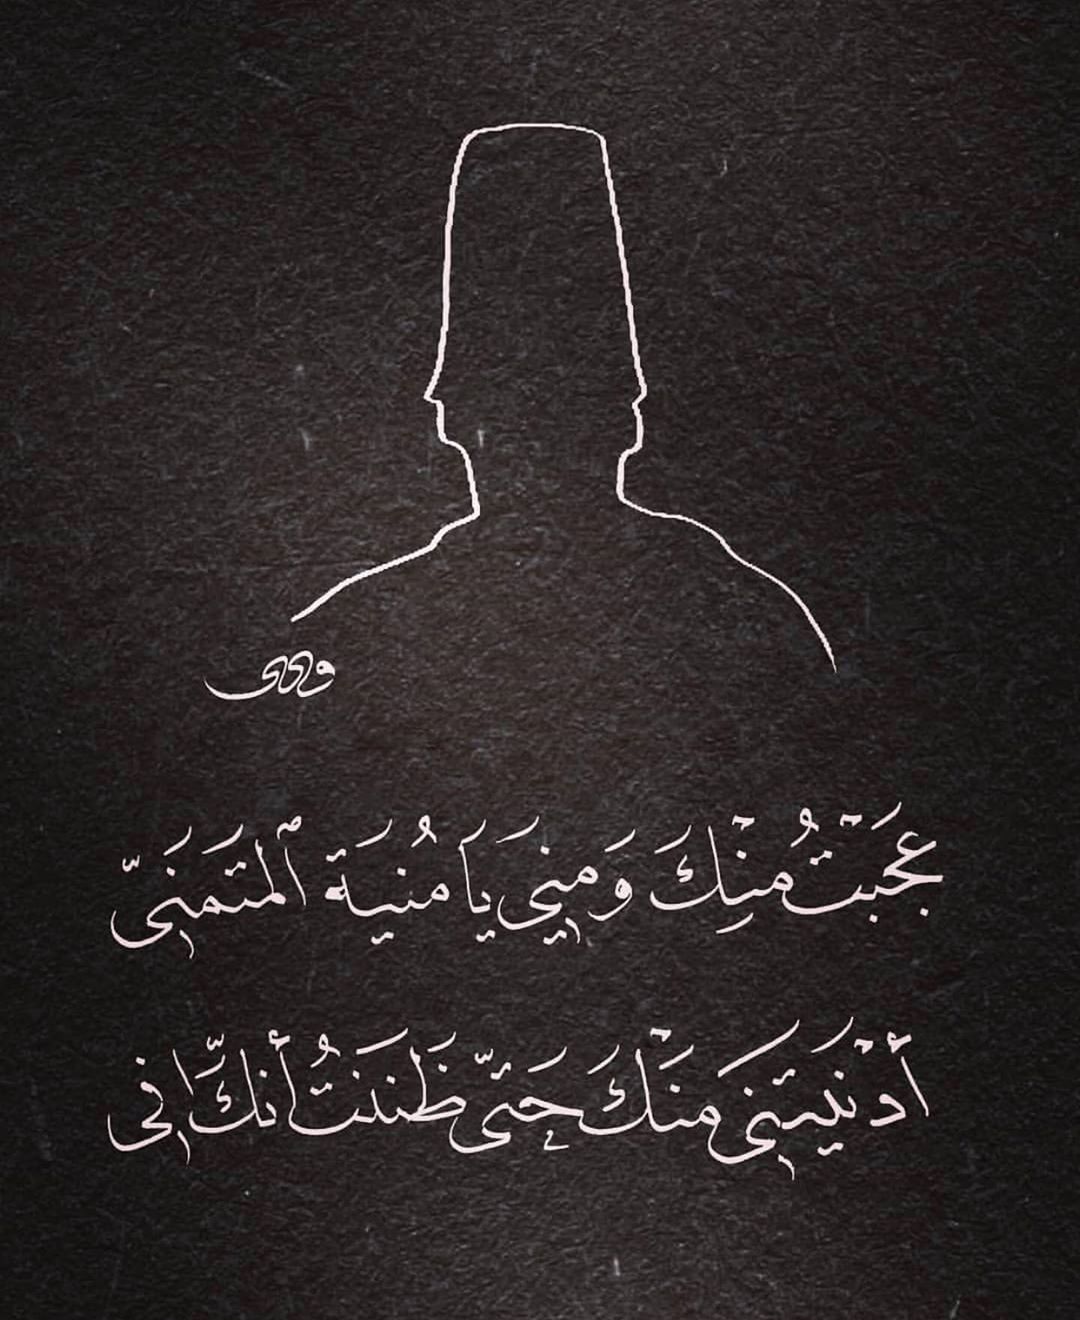 عَجَبْتُ مُنِْكَ وَمِنِي يَا مُنيَةَ ٱلمتَمَنَيّ
أدْنَيتَنِى مَنْكَ حَتىّ ظَنَنتُ أنكَّ إنى